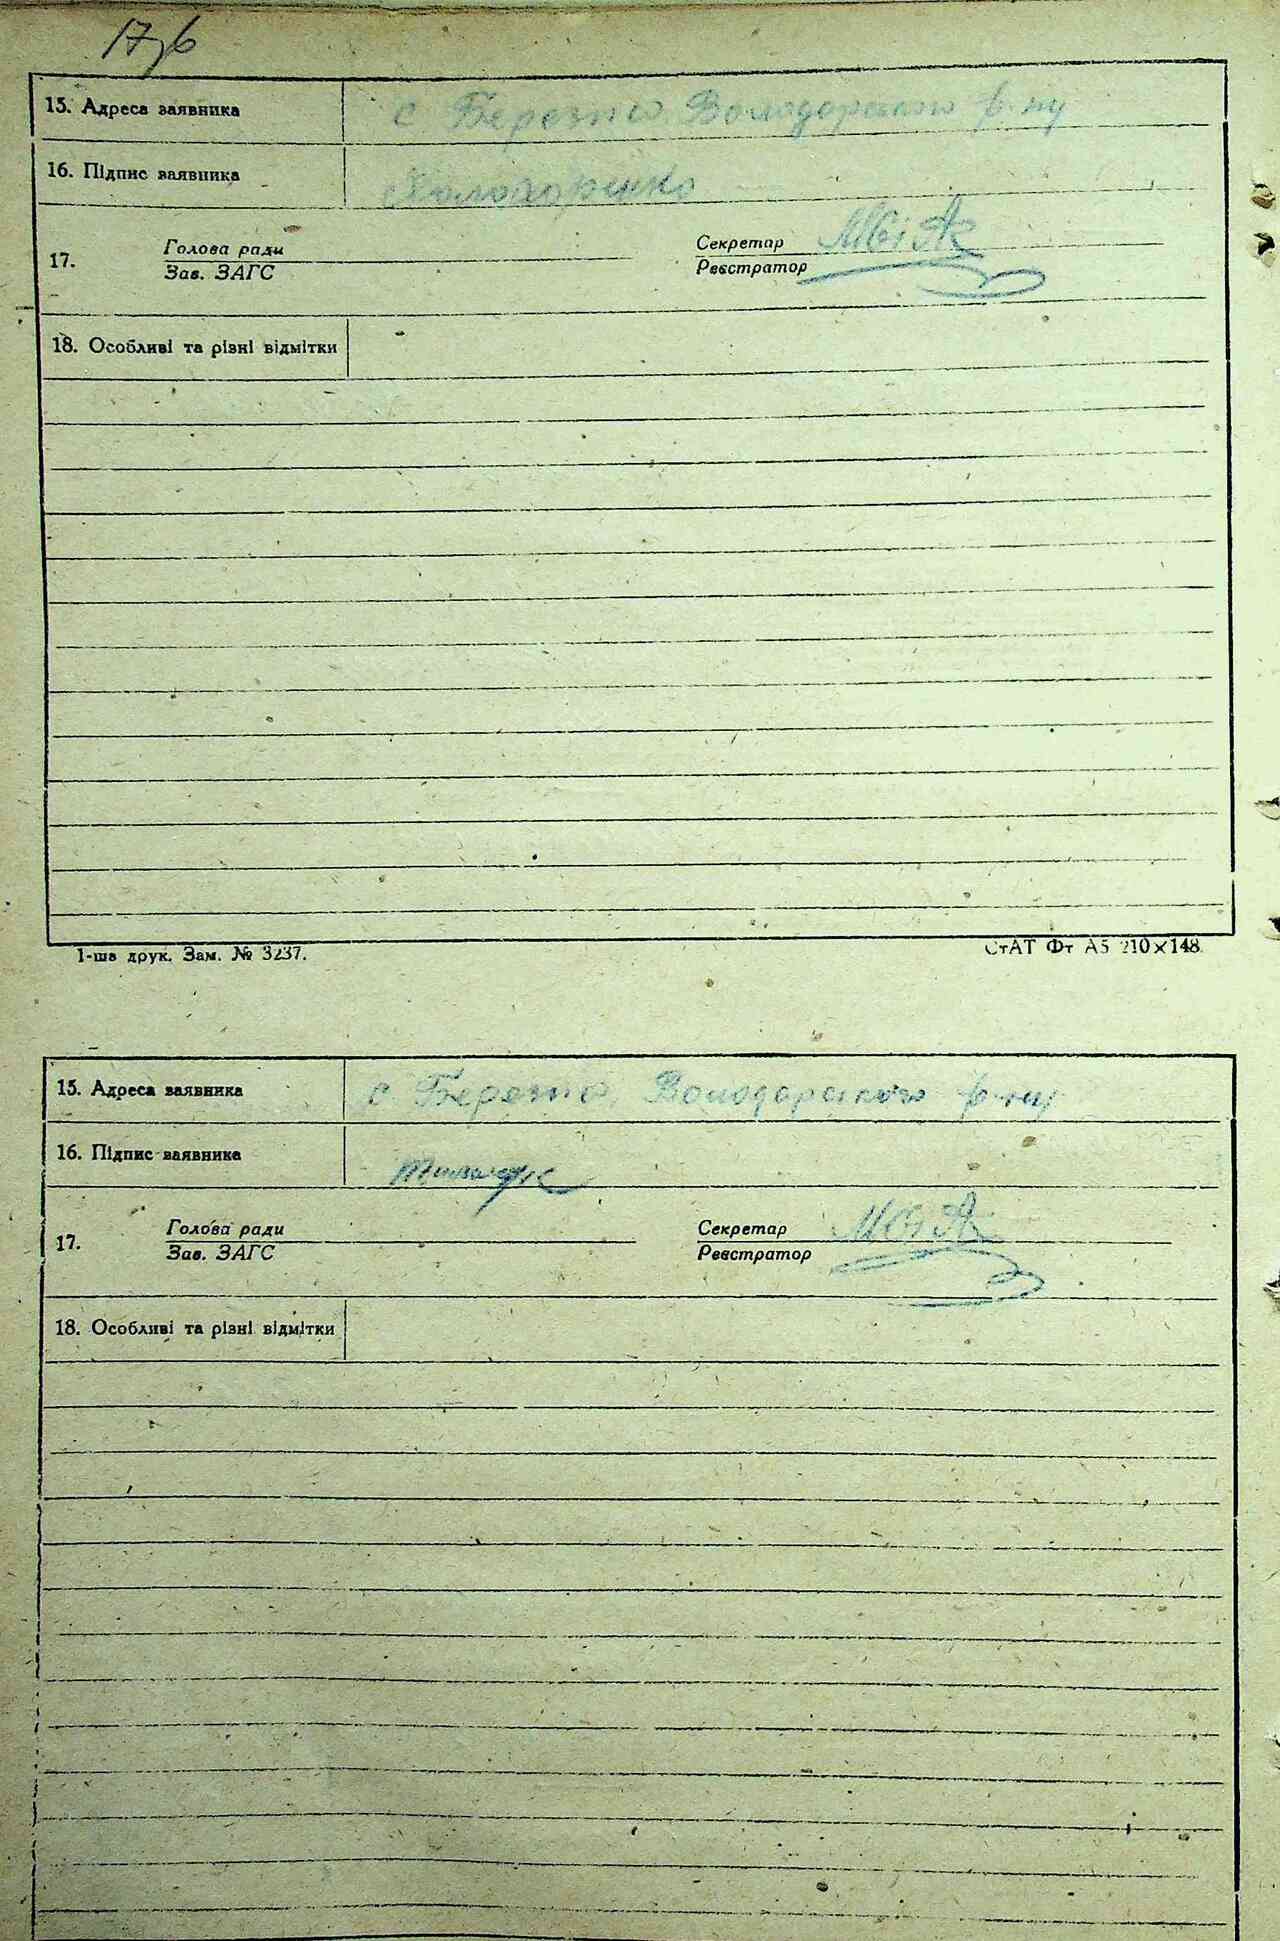 15. Адреса заявника с. Березно Володарського р-ну
16. Підпис заявника
17. Голова ради Секретар
Зав. ЗАГС Реєстратор
18. Особливі та різні відмітки
1-ша друк. Зам. № 3237. СтАТ Фт А5 210×148
15. Адреса заявника с. Березно Володарського р-ну
16. Підпис заявника
17. Голова ради Секретар
Зав. ЗАГС Реєстратор
18. Особливі та різні відмітки